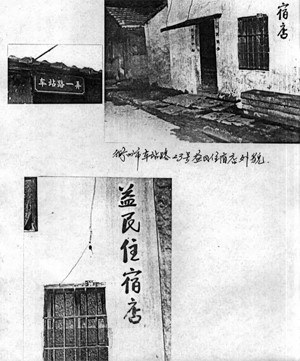 宿店
车站路一弄
市车站路23号益民住宿店外貌.
益民住宿店